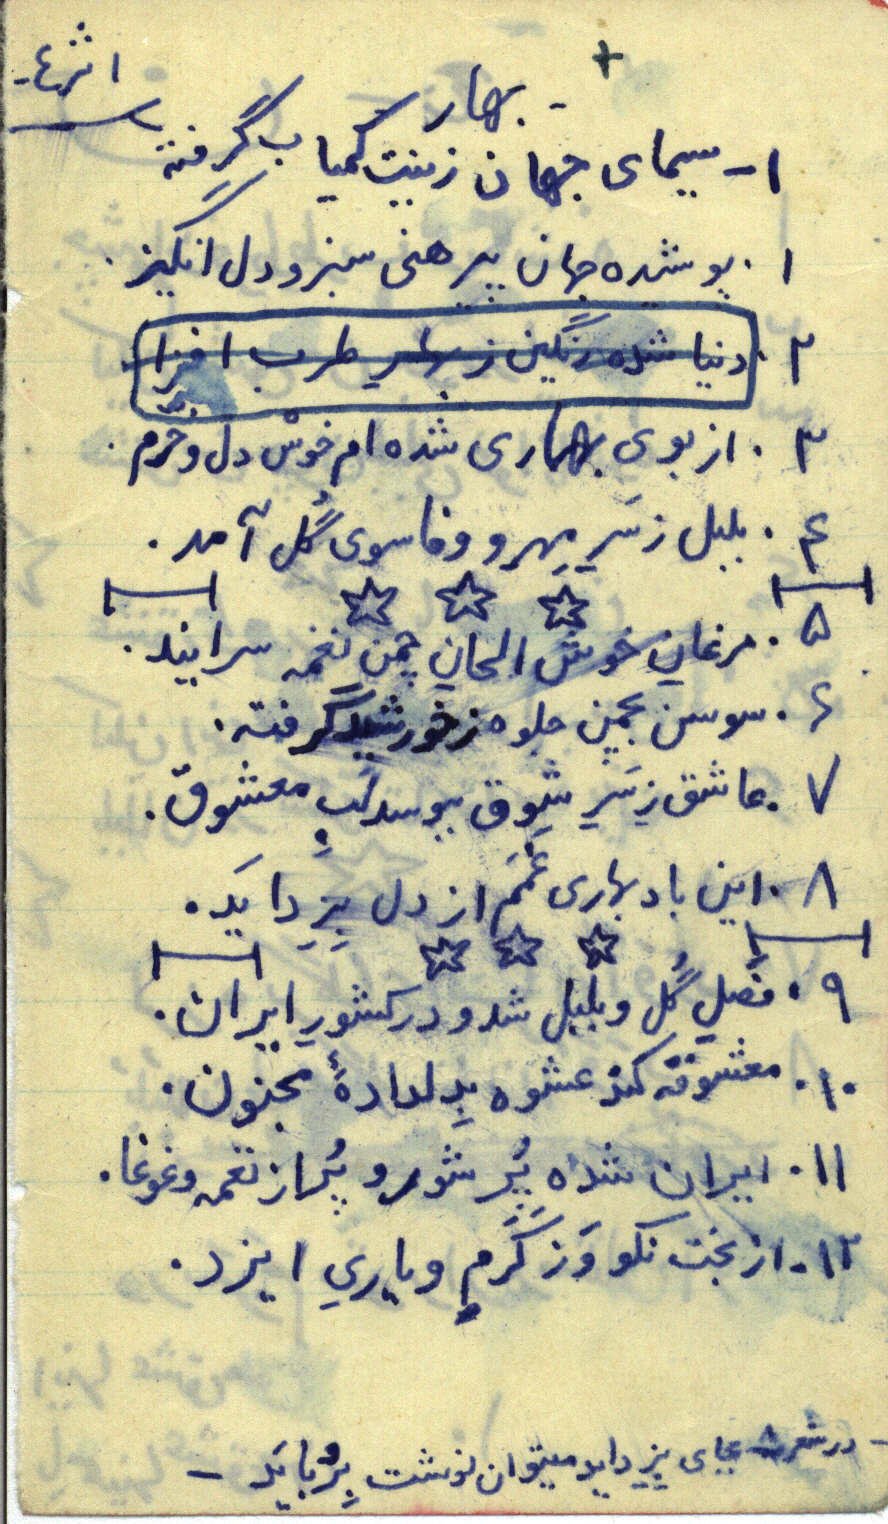 اثر ٤-
+
- بهار -
۱- سیمای جهان زینت کمیاب گرفته
۱. پوشیده جهان پیرهنی سبز و دل انگیز.
۲. دنیا شده رنگین ز طرب افزا.
۳. از بوی بهاری شده ام خوش دل و خرم.
۴. بلبل ز سَرِ مِهر و وفا سوی گُل آمد.
۵. مرغانِ خوش الحانِ چمن نغمه سرایند.
۶. سوسن بچمن جلوه ز خورشید گرفته.
۷. عاشق زِ سَرِ شوق ببوسد لَبِ معشوق.
۸. این باد بهاری غَمَم از دل بِزِدایَد.
۹. فَصلِ گُل و بلبل شد و در کشورِ ایران.
۱۰. معشوقه کند عشوه بِدِلدادهٔ مجنون.
۱۱. ایران شده پُر شور و پُر از نغمه و غوغا.
۱۲. از بخت نکو وَز کَرَمِ و یاریِ ایزد.
- در شعر بجای بزداید میتوان نوشت بِرُبایَد -